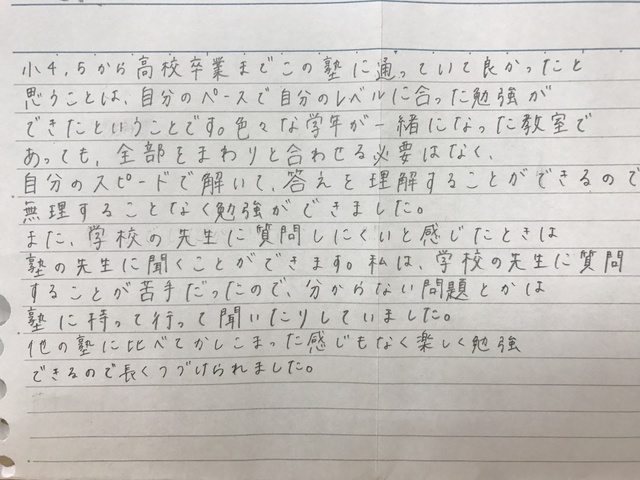 小4,5から高校卒業までこの塾に通っていて良かったと
思うことは、自分のペースで自分のレベルに合った勉強が
できたということです。色々な学年が一緒になった教室で
あっても、全部をまわりと合わせる必要はなく、
自分のスピードで解いて、答えを理解することができるので
無理することなく勉強ができました。
また、学校の先生に質問しにくいと感じたときは
塾の先生に聞くことができます。私は、学校の先生に質問
することが苦手だったので、分からない問題とかは
塾に持って行って聞いたりしていました。
他の塾に比べてかしこまった感じもなく楽しく勉強
できるので長くつづけられました。